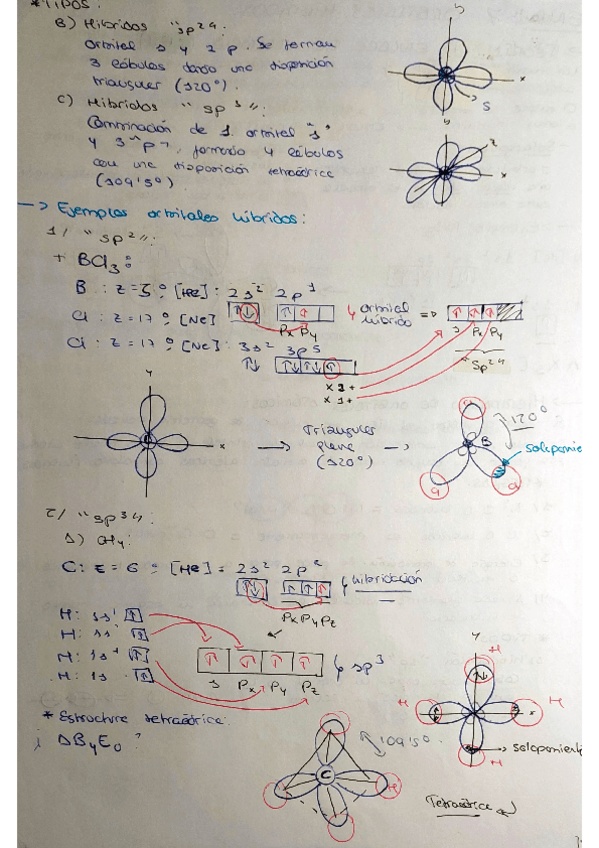 *TIPOS:
B) Híbridos "sp2":
orbital s y 2 p. Se forman
3 lóbulos dando una disposición
triangular (120°).
y
x
S
C) Híbridos "sp3":
Combinación de 1 orbital "s"
y 3 "p", formando 4 lóbulos
con una disposición tetraédrica
(109'5°)
y
z
x
-> Ejemplos orbitales híbridos:
1/ "sp2":
+ BCl3:
B : Z=5 : [He] : 2s2 2p1
Cl : Z=17 : [Ne]
Px Py
orbital híbrido =>
s Px Py
"sp2"
Cl : Z=17 : [Ne] : 3s2 3p5
x1+
x1+
y
x
-> Triangular plana (120°) ->
B
120°
Cl
Cl
2/ "sp3":
1) CH4:
C : Z=6 : [He] = 2s2 2p2
Px Py Pz
hibridación
H : 1s1
H : 1s1
H : 1s1
H : 1s
s Px Py Pz
sp3
* Estructura tetraédrica:
¡ AB4E0 ?
C
109'5°
H
y
H
H
H
H
Tetraédrica